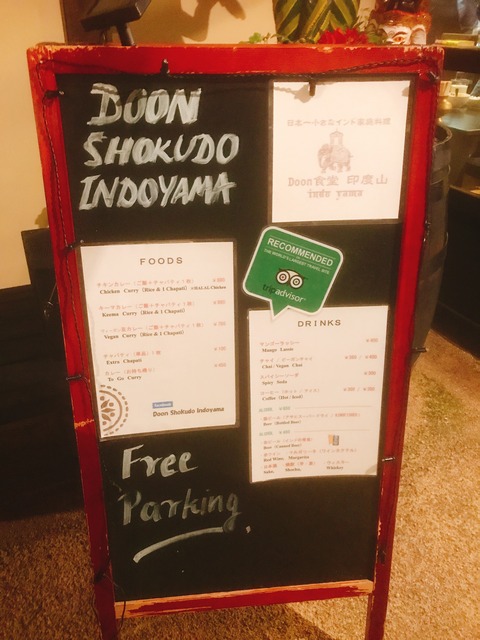 DOON
SHOKUDO
INDOYAMA
Doon食堂 印度山
indo yama
RECOMMENDED
THE WORLD'S LARGEST TRAVEL SITE
tripadvisor
FOODS
チキンカレー（ご飯＋チャパティ1枚）
Chicken Curry (Rice & 1 Chapati) ※HALAL Chicken
キーマカレー（ご飯＋チャパティ1枚）
Keema Curry (Rice & 1 Chapati)
カレー（ご飯＋チャパティ1枚）
Vegan Curry (Rice & 1 Chapati)
チャパティ（単品）1枚
Extra Chapati
カレー（お持ち帰り）
To Go Curry
Doon Shokudo Indoyama
DRINKS
マンゴーラッシー
Mango Lassie
チャイ / ビーガンチャイ
Chai / Vegan Chai
スパイシーソーダ
Spicy Soda
コーヒー（ホット・アイス）
Coffee (Hot / Iced)
Beer (Bottled Beer)
Beer (Canned Beer)
Red Wine, Margarine
Sake, Mocha, Whiskey
Free
Parking